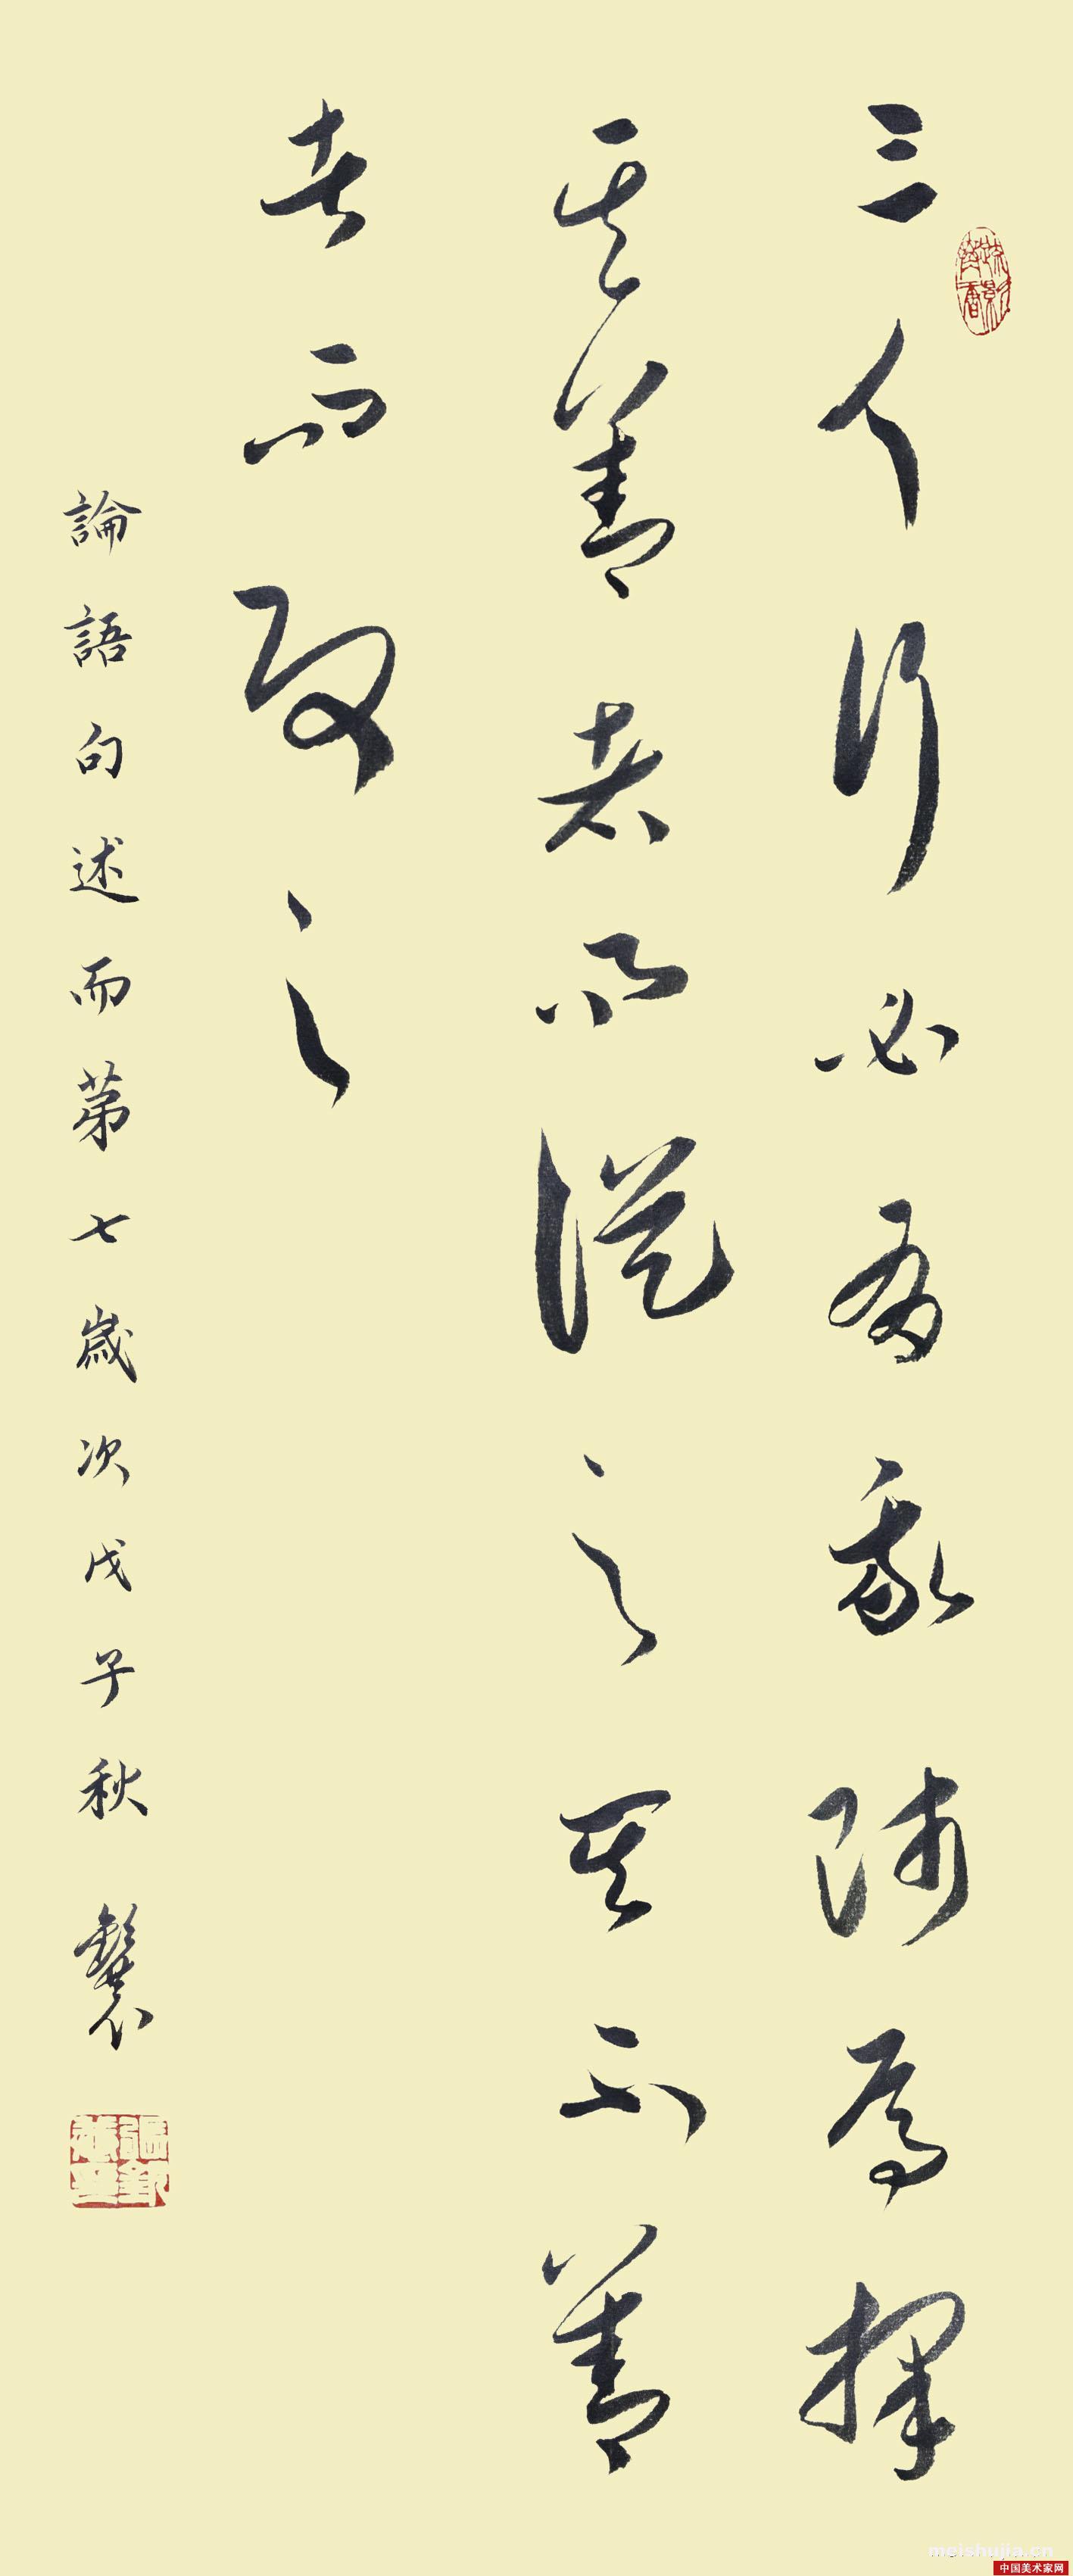 三人行必有我師焉擇
其善者而從之其不善
者而改之
論語句述而第七歲次戊子秋
meishujia.cn
中国美术家网